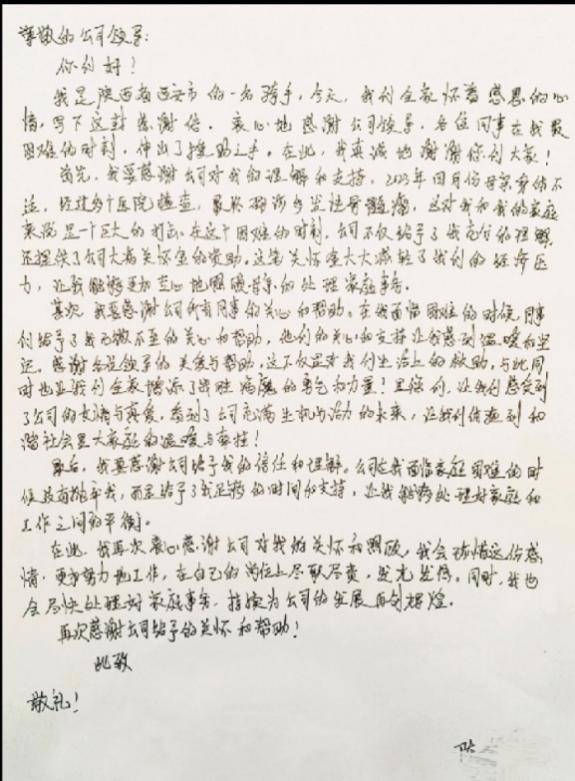 尊敬的公司领导：
你们好！
我是陕西省西安市的一名骑手，今天，我们全家怀着感恩的心
情，写下这封感谢信。衷心地感谢公司领导，各位同事在我最
困难的时刻，伸出了援助之手。在此，我真诚地谢谢你们大家！
首先，我要感谢公司对我的理解和支持，2023年四月份母亲身体不
适，经过多个医院检查，最终确诊多发性骨髓瘤，这对我和我的家庭
来说是一个巨大的打击。在这个困难的时刻，公司不仅给予了我充分的理解，
还提供了公司大病关怀金的资助。这笔关怀金大大减轻了我们的经济压
力，让我能够更加安心地照顾母亲的处理家庭事务。
其次，我要感谢公司所有同事的关心和帮助。在我面临困难的时候，同事
们给予了我无微不至的关心和帮助，他们的关心和支持让我感到温暖和坚
定。感谢各位领导的关爱与帮助，这不仅是对我们生活上的救助，与此同
时也让我们全家增添了战胜病魔的勇气和力量！ 让我们感受到
了公司的友情与真爱，看到了公司充满生机与活力的未来，让我们体验到和
谐社会是大家庭的温暖与幸福！
最后，我要感谢公司给予我的信任和理解。公司在我面临家庭困难的时
候没有抛弃我，而是给予了我足够的时间和支持，让我能够处理好家庭和
工作之间的平衡。
在此，我再次衷心感谢公司对我的关怀和照顾，我会珍惜这份感
情，更加努力地工作，在自己的岗位上尽职尽责，发光发热。同时，我也
会尽快处理好家庭事务，持续为公司的发展再创辉煌。
再次感谢公司给予的关怀和帮助！
此致
敬礼！